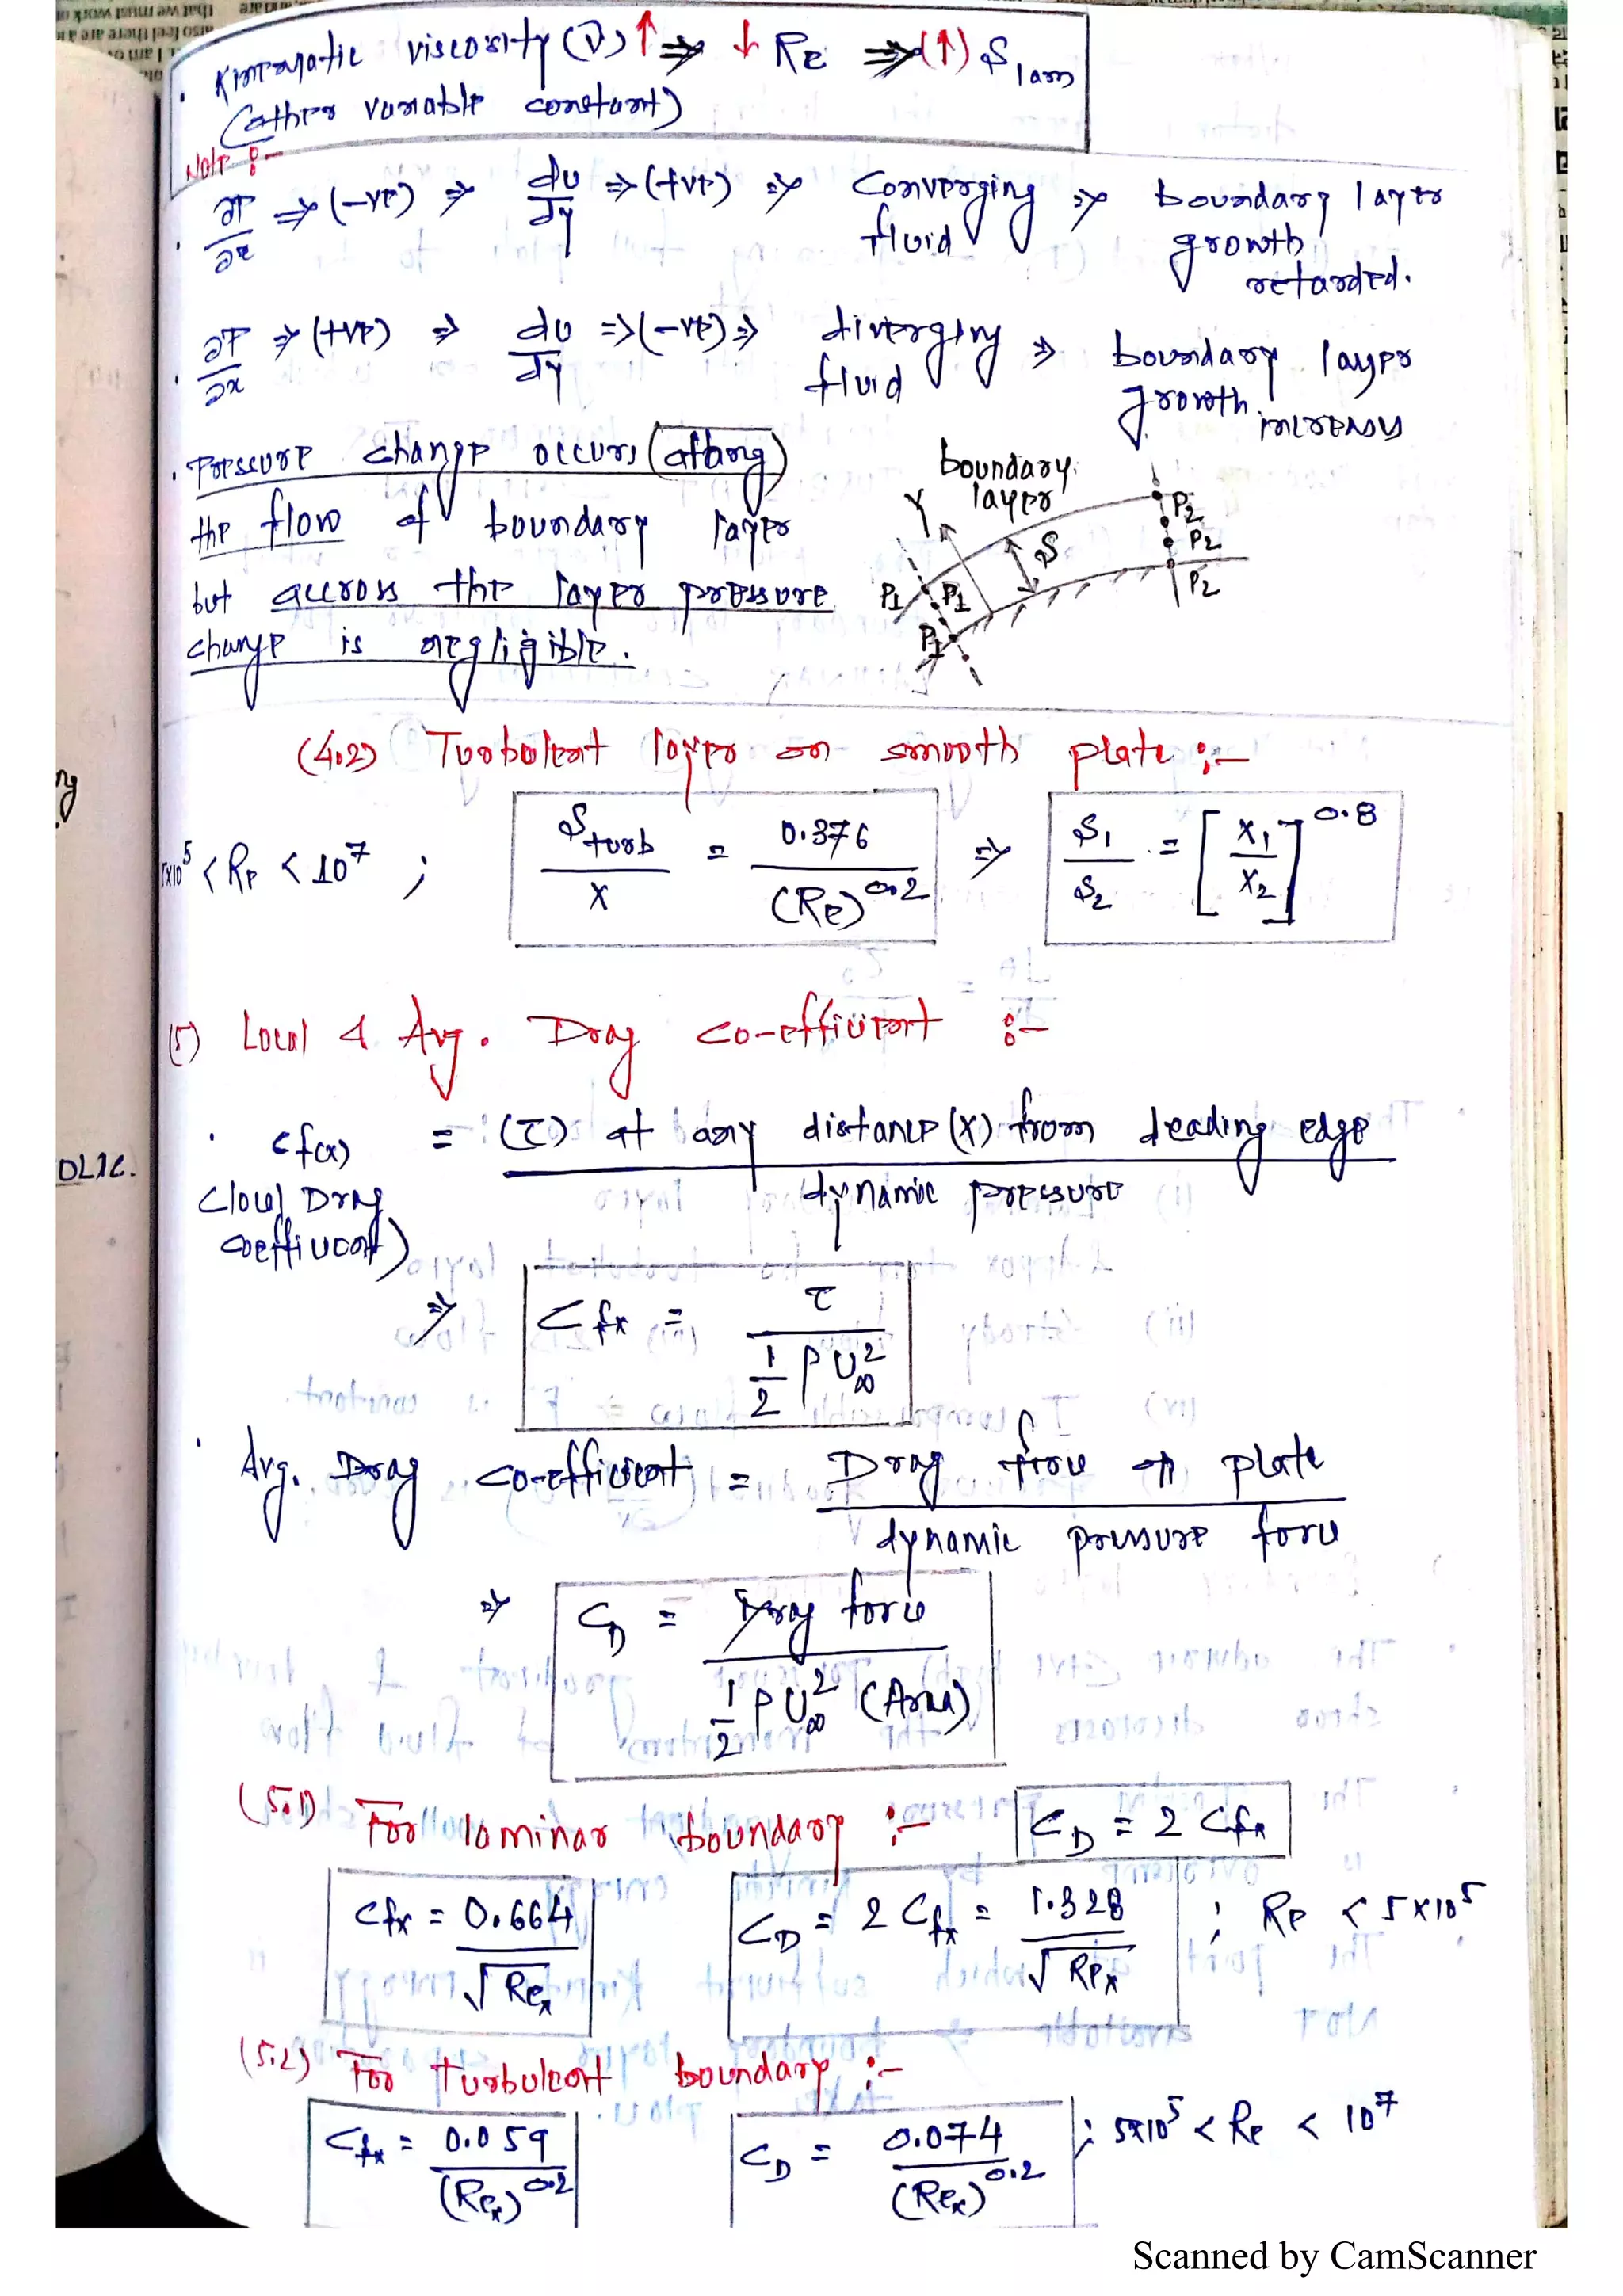 • Kinematic viscosity (ν) ↑ ⇒ ↓ Re ⇒ (↑) δ lam
(other variable constant)
Note :-
• ∂P/∂x ⇒ (-ve) ⇒ du/dy ⇒ (+ve) ⇒ Converging fluid ⇒ boundary layer growth retarded.
• ∂P/∂x ⇒ (+ve) ⇒ du/dy ⇒ (-ve) ⇒ diverging fluid ⇒ boundary layer growth increases
• Pressure change occurs (along)
the flow of boundary layer
but accross the layer pressure
change is negligible.
boundary layer
Y
δ
P1 P1 P1
P2
P2
P2
(4.2) Turbulent layer on smooth plate :-
5×10^5 < Re < 10^7 ; δturb/x = 0.376/(Re)^0.2 ⇒ δ1/δ2 = [x1/x2]^0.8
(5) Local & Avg. Drag co-efficient :-
• Cf(x) = (τ) at any distance (x) from leading edge / dynamic pressure
(local Drag coefficient)
⇒ Cfx = τ / ½ ρ U∞²
• Avg. Drag co-efficient = Drag force on plate / dynamic pressure force
⇒ CD = Drag force / ½ ρ U∞² (Area)
(5.1) For laminar boundary :- CD = 2 Cfx
Cfx = 0.664/√Rex CD = 2 Cfx = 1.328/√Rex ; Re < 5×10^5
(5.2) For turbulent boundary :-
Cfx = 0.059/(Rex)^0.2 CD = 0.074/(Rex)^0.2 ; 5×10^5 < Re < 10^7
Scanned by CamScanner